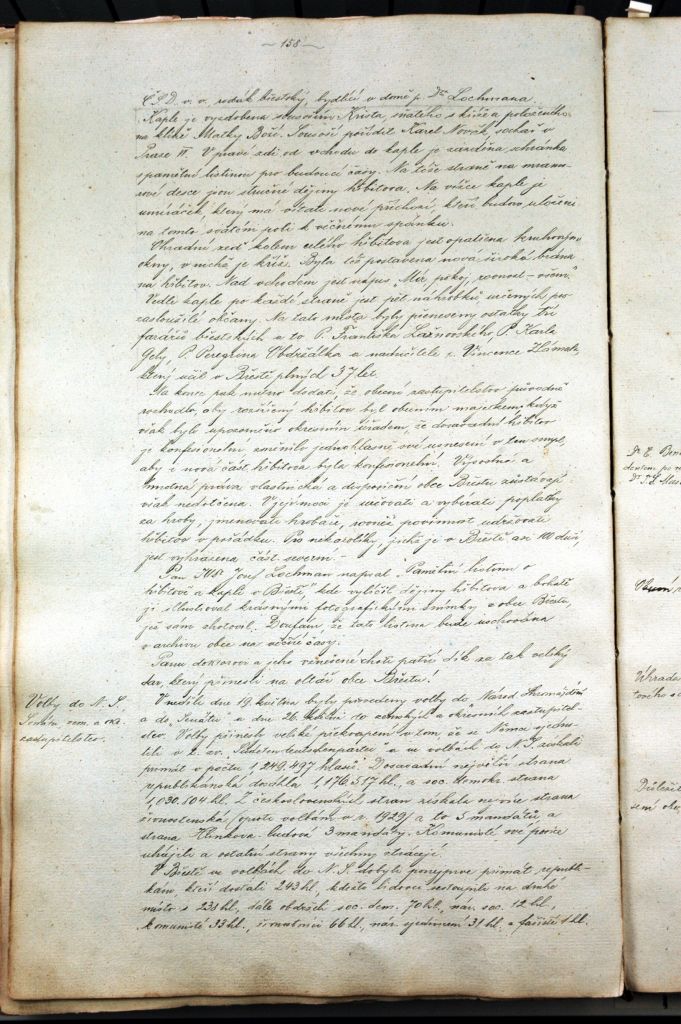 - 158 -
Č.S.D. v. v. rodák břestský, bydlící v domě p. Dr Lochmana.
Kaple je vyzdobena sousoším Krista, sňatého s kříže a položeného
na klíně Matky Boží. Sousoší pořídil Karel Novák, sochař v
Praze II. V pravé zdi od vchodu do kaple je zazděna schránka
s pamětní listinou pro budoucí časy. Na téže straně na mramo-
rové desce jsou stručné dějiny hřbitova. Na věžce kaple je
umíráček, který má vítati nové příchozí, kteří budou uloženi
na tomto svatém poli k věčnému spánku.
Ohradní zeď kolem celého hřbitova jest opatřena kruhovými
okny, v nichž je kříž. Byla též postavena nová široká brána
na hřbitov. Nad vchodem jest nápis „Mír, pokoj, rovnost - všem."
Vedle kaple po každé straně jest pět náhrobků, určených pro
zasloužilé občany. Na tato místa byly přeneseny ostatky tří
farářů břestských a to P. Františka Lažnovského, P. Karla
Gely, P. Peregrina Obdržálka a nadučitele z. Vincence Hámala,
který učil v Břestě plných 37 let.
Na konec pak nutno dodati, že obecní zastupitelstvo původně
rozhodlo, aby rozšířený hřbitov byl obecním majetkem; když
však bylo upozorněno okresním úřadem, že dosavadní hřbitov
je konfesionelní, změnilo jednohlasně své usnesení v ten smysl,
aby i nová část hřbitova byla konfesionelní. Výsostná a
hmotná práva vlastnická a disposiční obce Břestu zůstávají
však nedotčena. Výjimkou je určovati a vybírati poplatky
za hroby, jmenovati hrobaře, rovněž povinnost udržovati
hřbitov v pořádku. Pro nekatolíky, jichž je v Břestě asi 100 duší,
jest vyhrazena část severní. -
Pan JUDr Josef Lochman napsal „Pamětní listinu o
hřbitově a kapli v Břestě," kde vylíčil dějiny hřbitova a bohatě
ji illustroval krásnými fotografickými snímky z obce Břestu,
jež sám zhotovil. Doufám, že tato listina bude uschována
v archivu obce na věčné časy.
Panu doktorovi a jeho vznešené choti patří dík za tak veliký
dar, který přinesli na oltář obce Břestu!
Volby do N. S.
Senátu, zem. a okr.
zastupitelstev.
V neděli dne 19. května byly provedeny volby do Národ. Shromáždění
a do „Senátu" a dne 26. května do zemských a okresních zastupitel-
stev. Volby přinesly veliké překvapení v tom, že se Němci sjedno-
tili v t. zv. „Sudetendeutschepartei" a ve volbách do N. S. získali
primát v počtu 1,249.497 hlasů. Dosavadní největší strana
republikánská dosáhla 1,176.517 hl., a soc. demokr. strana
1,030.104 hl. Z československých stran získala nejvíce strana
živnostenská (oproti volbám v r. 1929) a to 5 mandátů, a
strana Hlinkova - ludová 3 mandáty. Komunisté své posice
uhájili a ostatní strany všechny ztrácejí.
V Břestě ve volbách do N. S. dobyli ponejprve primát republi-
káni, kteří dostali 243 hl., kdežto lidovci sestoupili na druhé
místo s 238 hl., dále obdrželi soc. dem. 70 hl., nár. soc. 12 hl.,
komunisté 33 hl., živnostníci 66 hl., nár. sjednocení 31 hl. a fašisté 1 hl.